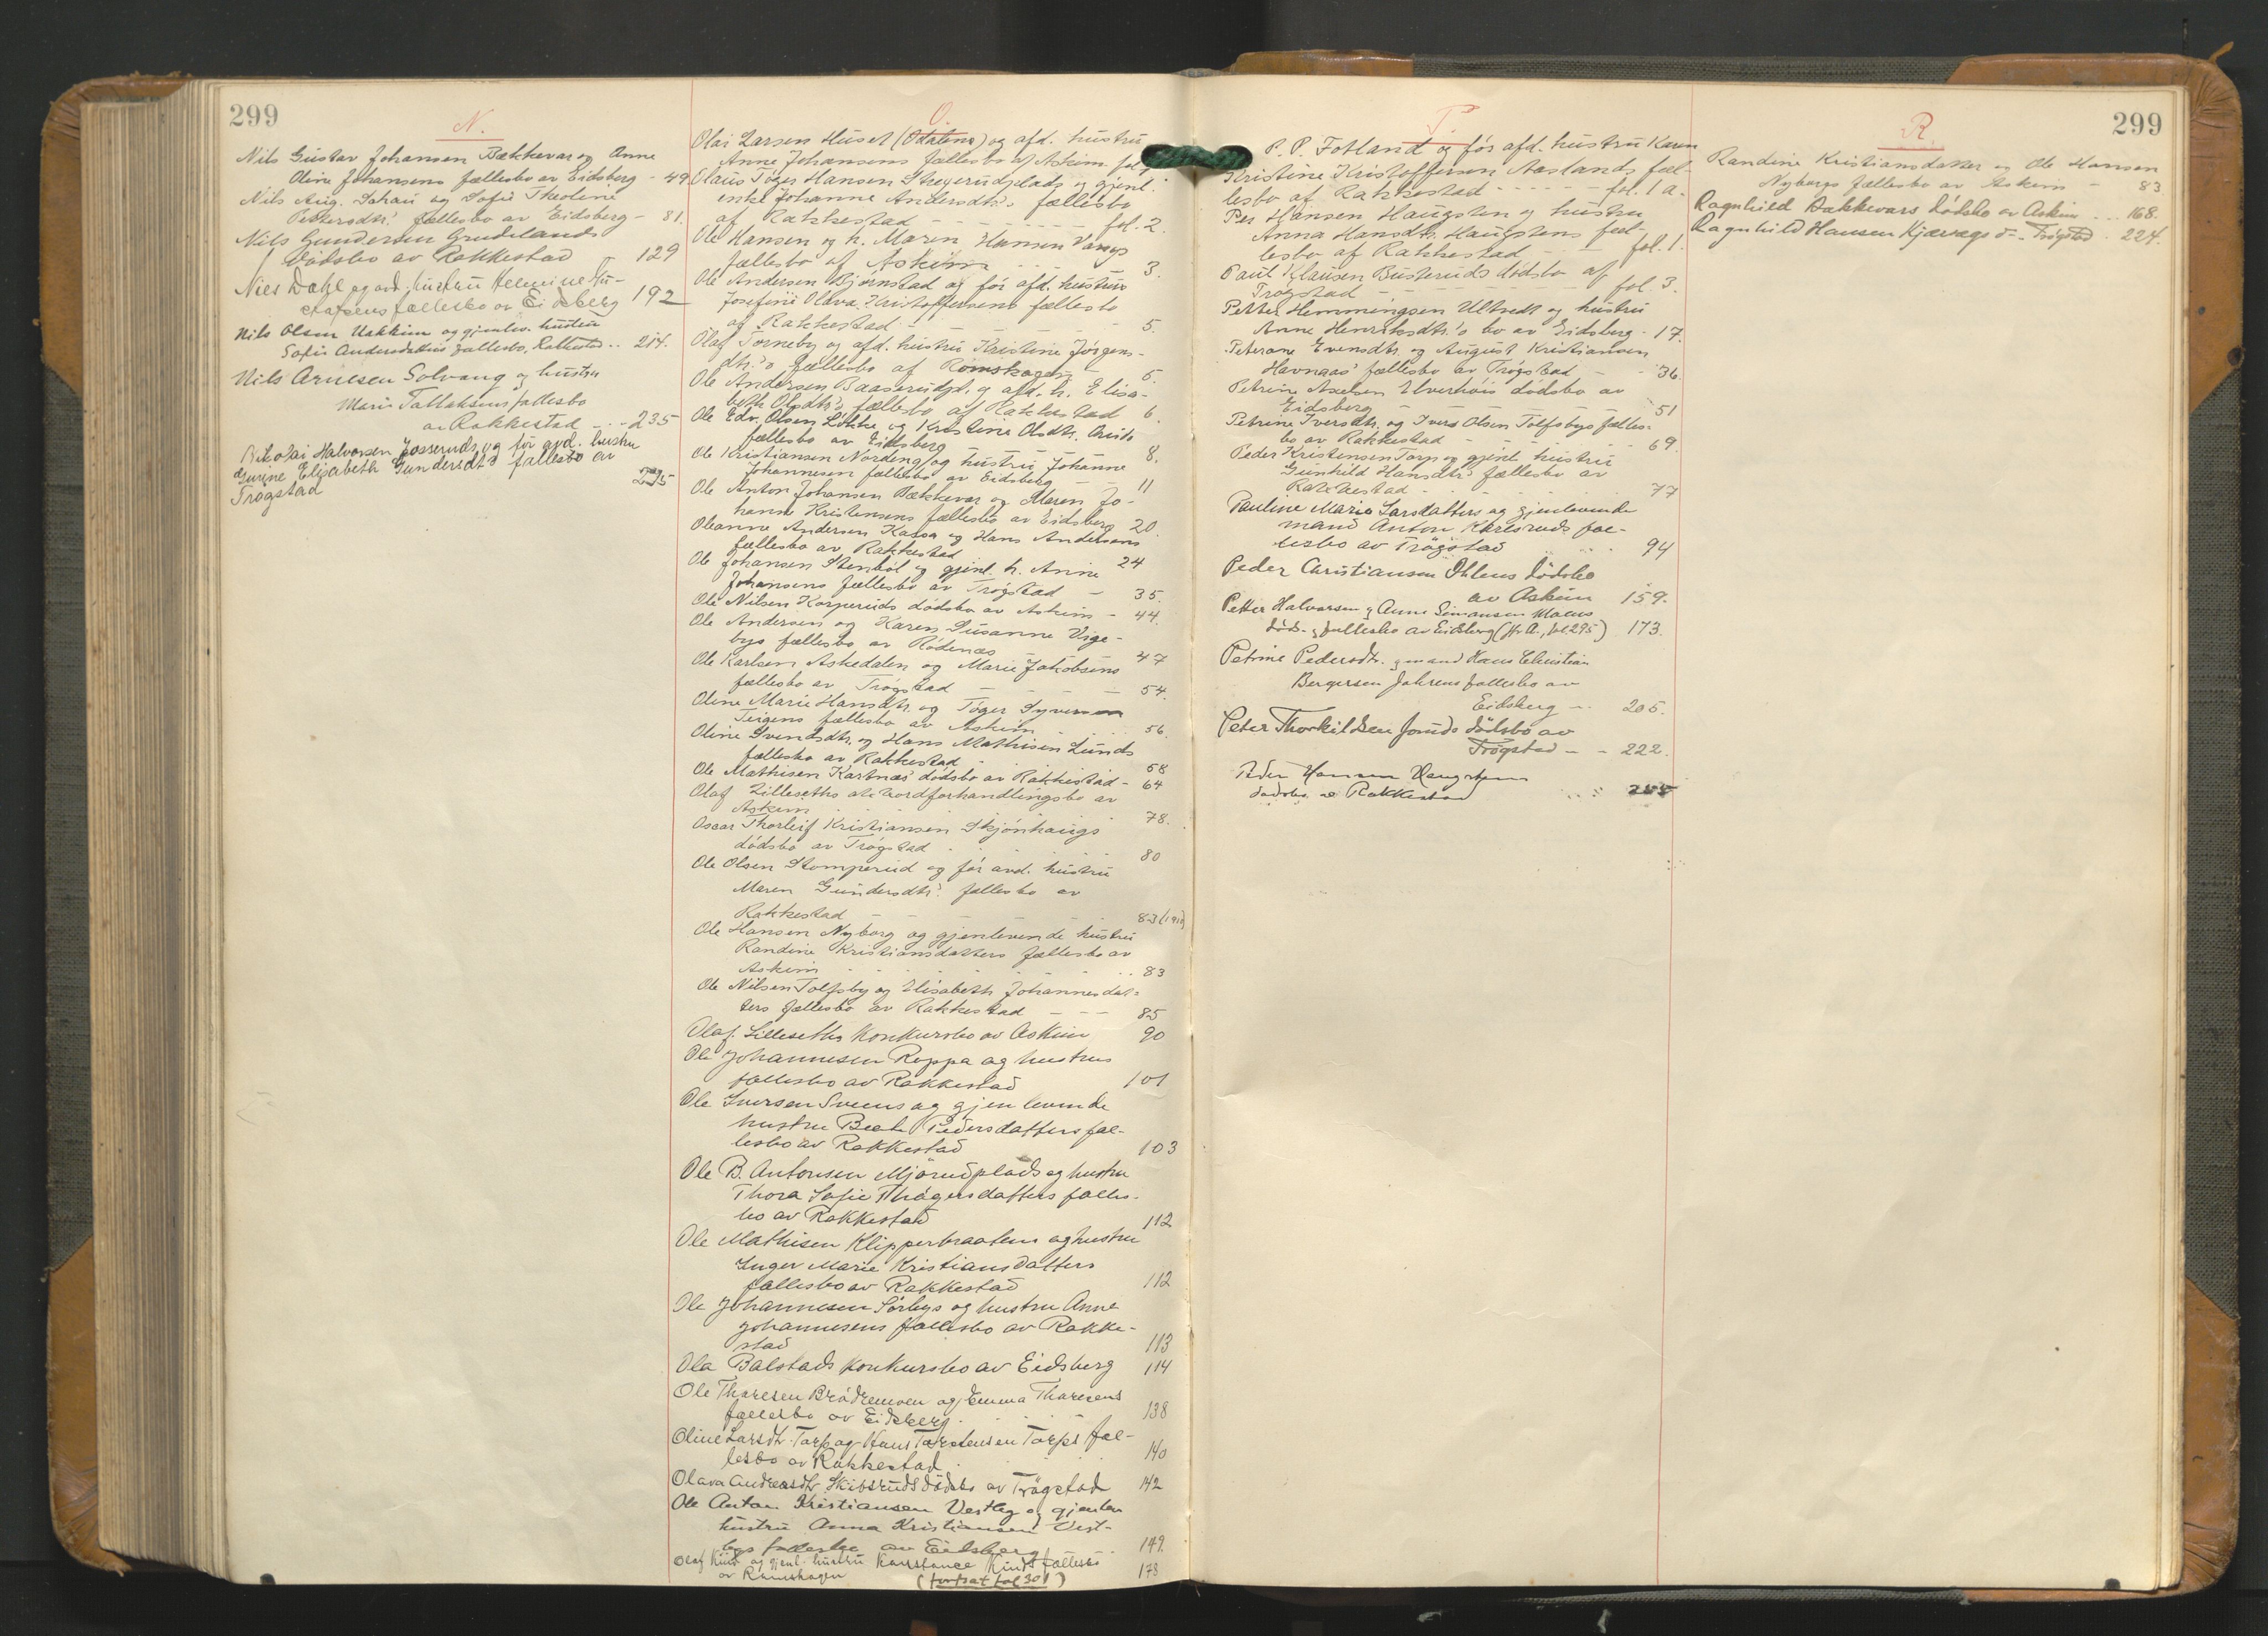 299
N.
Nils Gustav Johansen Bækkevar og Anne
Oline Johansens fællesbo av Eidsberg - 49.
Nils Aug. Johan og Sofie Theoline
Pettersdtr.' fællesbo av Eidsberg - 81.
Nils Gundersen Grudelands
Dødsbo av Rakkestad - 129
Niels Dahl og avd. hustru Helmine
fællesbo av Eidsberg 192
Nils Olsen og gjenlev. hustru
Sofie Andersdatters fællesbo, Rakkestad .. 214.
Nils Arnesen Solvang og hustru
Marie Tollaksens fællesbo
av Rakkestad - .. 235
Nikolai Halvorsen Fosseruds og før avd. hustru
Gurine Elisabeth Gundersdt's fællesbo av
Trøgstad 295
O.
Olai Larsen Huset (Odalens) og afd. hustru
Anne Johansens fællesbo af Askim. fol.
Olaus Tøger Hansen Stegerudplads og gjenl.
enke Johanne Andersdtr's fællesbo
af Rakkestad - - - - - fol. 2.
Ole Hansen og h. Maren Hansen Vangs
fællesbo af Askim 3.
Ole Andersen Bjørnstad og før afd. hustrus
Josefine Oleva Kristoffersens fællesbo
af Rakkestad - 5.
Olaf Torneby og afd. hustru Kristine Jørgens-
dtr.'s fællesbo af Rømskogen 5.
Ole Andersen Baaserudpl. og afd. h. Elisa-
beth Olsdtr's fællesbo af Rakkestad 6.
Ole Edv. Olsen Løkke og Kristine Olsdtr.
fællesbo av Eidsberg 8.
Ole Kristiansen Nordeng og hustru Johanne
Johannesen fællesbo av Eidsberg - 11
Ole Anton Johansen Bækkevar og Maren Jo-
hanne Kristensens fællesbo av Eidsberg 20.
Oleanne Andersen Kaasa og Hans Andersens
fællesbo av Rakkestad 24
Ole Johansen Stenbøl og gjenl. h. Anine
Johansens fællesbo av Trøgstad - 35.
Ole Nilsen Korperuds dødsbo av Askim - 44.
Ole Andersen og Karen Susanne Vige-
bys fællesbo av Rødenæs 47
Ole Karlsen Askedalen og Marie Jakobsens
fællesbo av Trøgstad - - - - 54.
Oline Marie Hansdtr. og Tøger Syversen
Teigens fællesbo av Askim 56.
Oline Svendsdtr. og Hans Mathisen Lunds
fællesbo av Rakkestad 58
Ole Mathisen Kartnæs' dødsbo av Rakkestad - 64
Olaf Lilleseths akkordforhandlingsbo av
Askim 78.
Oscar Thorleif Kristiansen Skjønhaugs
dødsbo av Trøgstad 80
Ole Olsen Stomperud og før avd. hustru
Maren Gundersdtr.' fællesbo av
Rakkestad - - - 83 (1910)
Ole Hansen Nyborg og gjenlevende hustru
Randine Kristiansdatters fællesbo av
Askim .. 83
Ole Nilsen Tolfsby og Elisabeth Johannesdat=
ters fællesbo av Rakkestad - - - 85
Olaf Lilleseths konkursbo av Askim 90
Ole Johannesen Roppa og hustrus
fællesbo av Rakkestad 101
Ole Iversen Sveens og gjenlevende
hustru Beate Pedersdatters fæl-
lesbo av Rakkestad 103
Ole B. Antonsen Mjørudplads og hustru
Thora Sofie Thøgersdatters fælles-
bo av Rakkestad 112
Ole Mathisen Klipperbraatens og hustru
Inger Marie Kristiansdatters
fællesbo av Rakkestad 112
Ole Johannesen Sørbys og hustru Anne
Johannesens fællesbo av Rakke-
stad 113
Ola Balstads konkursbo av Eidsberg 114
Ole Thoresen Brødremoen og Emma Thoresens
fællesbo av Eidsberg. 138
Oline Larsdtr. Torp og Hans Torstensen Torps fæl-
lesbo av Rakkestad. 140
Olava Andreasdtr. Skibsruds dødsbo av Trøgstad 142
Ole Anton Kristiansen Vestby og gjenlev
hustru Anna Kristiansen Vest-
bys fællesbo av Eidsberg 149.
Olaf Kind og gjenl. hustru Konstance Kinds fællesbo
av Rømskogen 178
(fortsat fol 301)
P.
P. P. Fotland og før afd. hustru Karen
Kristine Kristoffersen Aaslands fæl-
lesbo af Rakkestad - - - - - fol. 1 a.
Per Hansen Haugsten og hustru
Anna Hansdtr. Haugstens fæl-
lesbo af Rakkestad - - fol. 1.
Paul Klausen Busteruds dødsbo af
Trøgstad - - - - - fol. 3.
Petter Hemmingsen Ultvedt og hustru
Anne Henriksdtr.'s bo av Eidsberg - 17.
Peterane Evensdtr. og August Kristiansen
Havnaas' fællesbo av Trøgstad - - 36.
Petrine Axelsen Elverhøis dødsbo av
Eidsberg 51
Petrine Iversdtr. og Ivers Olsen Tolfsbys fælles=
bo av Rakkestad - - - 69.
Peder Kristensen Torp og gjenl. hustru
Gunhild Hansdtr.' fællesbo av
Rakkestad 77
Pauline Marie Larsdatters og gjenlevende
mand Anton Karlsruds fæl-
lesbo av Trøgstad 94
Peder Christiansen Øhlens dødsbo
av Askim 159.
Petter Halvorsen og Anne Simonsen Moens
døds- og fællesbo av Eidsberg (fr. A., fol. 295) 173.
Petrine Pedersdtr. og mand Hans Christian
Bergersen Jahrens fællesbo av
Eidsberg - .. 205.
Peter Thorkildsen dødsbo av
Trøgstad - - 222.
Peder Hansen Haugstens
dødsbo av Rakkestad
299
R.
Randine Kristiansdatter og Ole Hansen
Nyborgs fællesbo av Askim - 83.
Ragnhild Bækkevars dødsbo av Askim ... 168.
Ragnhild Hansen Kjærægs d- - Trøgstad . 224.